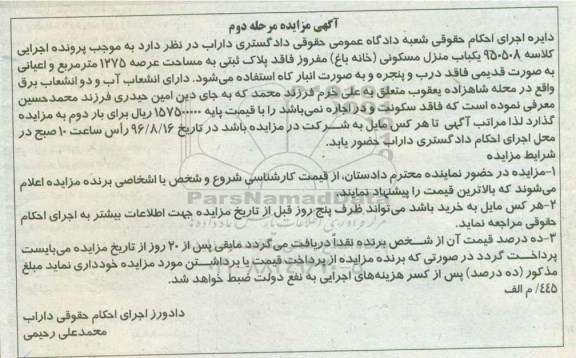 آگهی مزایده مرحله دوم
دایره اجرای احکام حقوقی شعبه دادگاه عمومی حقوقی دادگستری داراب در نظر دارد به موجب پرونده اجرایی
کلاسه ۹۵۰۵۰۸ یکباب منزل مسکونی (خانه باغ) مفروز فاقد پلاک ثبتی به مساحت عرصه ۱۲۷۵ مترمربع و اعیانی
به صورت قدیمی فاقد درب و پنجره و به صورت انبار کاه استفاده می‌شود. دارای انشعاب آب و دو انشعاب برق
واقع در محله شاهزاده یعقوب متعلق به علی خرم فرزند محمد که به جای دین امین حیدری فرزند محمدحسین
معرفی نموده است که فاقد سکونت و در اجاره نمی‌باشد را با قیمت پایه ۱۵۷۵۰۰۰۰۰۰ ریال برای بار دوم به مزایده
گذارد لذا مراتب آگهی تا هر کس مایل به شرکت در مزایده باشد در تاریخ ۹۶/۸/۱۶ رأس ساعت ۱۰ صبح در
محل اجرای احکام دادگستری داراب حضور یابد.
شرایط مزایده
۱-مزایده در حضور نماینده محترم دادستان، از قیمت کارشناسی شروع و شخص یا اشخاصی برنده مزایده اعلام
می‌شوند که بالاترین قیمت را پیشنهاد نمایند
۲-هر کس مایل به خرید باشد می‌تواند ظرف پنج روز قبل از تاریخ مزایده جهت اطلاعات بیشتر به اجرای احکام
حقوقی مراجعه نماید.
۳-ده درصد قیمت آن از شخص برنده نقداً دریافت می‌گردد مابقی پس از ۲۰ روز از تاریخ مزایده می‌بایست
پرداخت گردد در صورتی که برنده مزایده از پرداخت قیمت یا برداشتن مورد مزایده خودداری نماید مبلغ
مذکور (ده درصد) پس از کسر هزینه‌های اجرایی به نفع دولت ضبط خواهد شد.
۴۴۵/ م الف
دادورز اجرای احکام حقوقی داراب
محمدعلی رحیمی
ParsNamadData